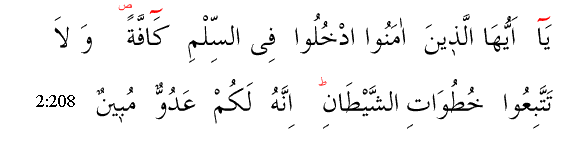 يَٓا اَيُّهَا الَّذ۪ينَ اٰمَنُوا ادْخُلُوا فِى السِّلْمِ كَٓافَّةًۖ وَلَا
تَتَّبِعُوا خُطُوَاتِ الشَّيْطَانِۜ اِنَّهُ لَكُمْ عَدُوٌّ مُب۪ينٌ 2:208